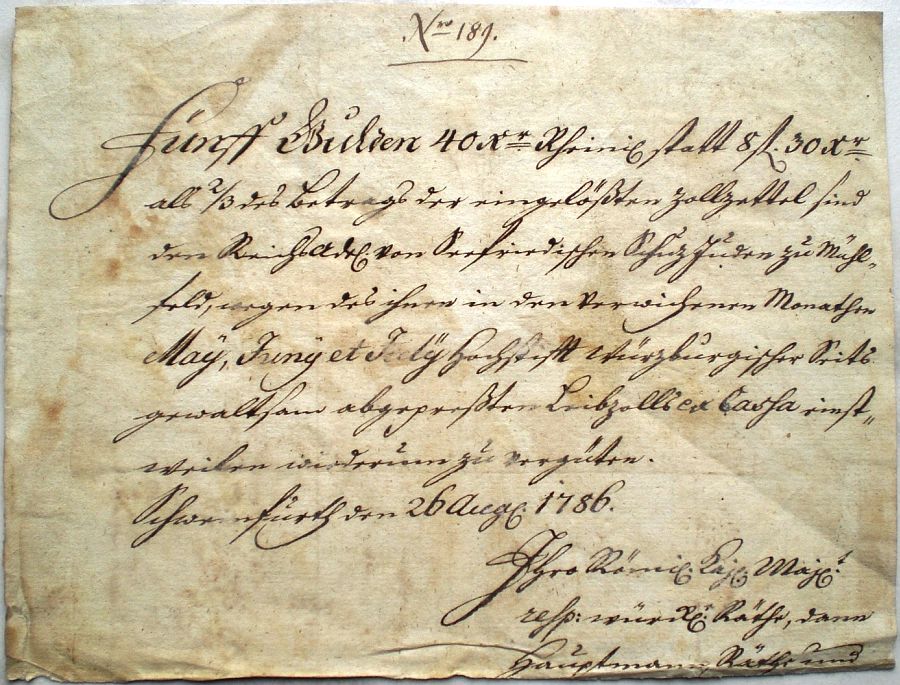 Nro 189.
Fünff Gulden 40 Xr Rheinl. statt 8 fl. 30 Xr
als 2/3 des Betrags der eingelößten Zollzettel sind
den ReichsAdel. von Seefriedischen SchuzJuden zu Mühl„
feld, wegen des ihnen in den verwichenen Monathen
Maÿ, Junÿ et Julÿ Hochstifft Würzburgischer Seits
gewaltsam abgepreßten Leibzolls ex Cassa einst„
weilen wiederum zu vergüten.
Schweinfurth den 26 Aug. 1786.
Ihro Römisch. Kays. Majest.
resp: würckl. Räthe, dann
Hauptmann, Räthe und